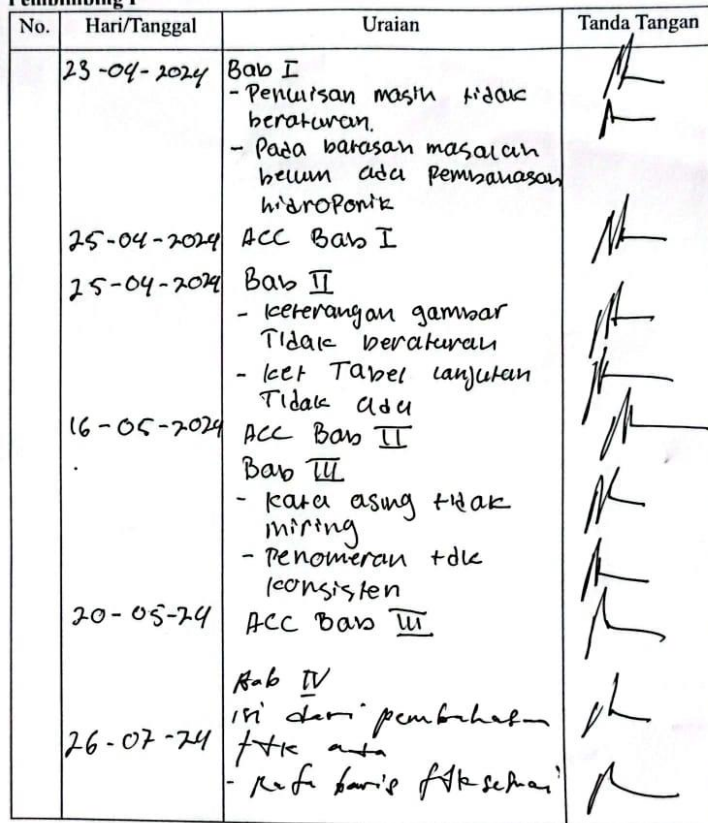 Pembimbing I
No. Hari/Tanggal Uraian Tanda Tangan
23-04-2024 Bab I
- Penulisan masih tidak
beraturan.
- Pada batasan masalah
belum ada Pembahasan
hidroponik
25-04-2024 ACC Bab I
25-04-2024 Bab II
- keterangan gambar
Tidak beraturan
- ket Tabel lanjutan
Tidak ada
16-05-2024 ACC Bab II
Bab III
- kata asing tidak
miring
- Penomeran tdk
konsisten
20-05-24 ACC Bab III
Bab IV
isi dari pembahasan
26-07-24 tdk ada
- baris tdk sesuai